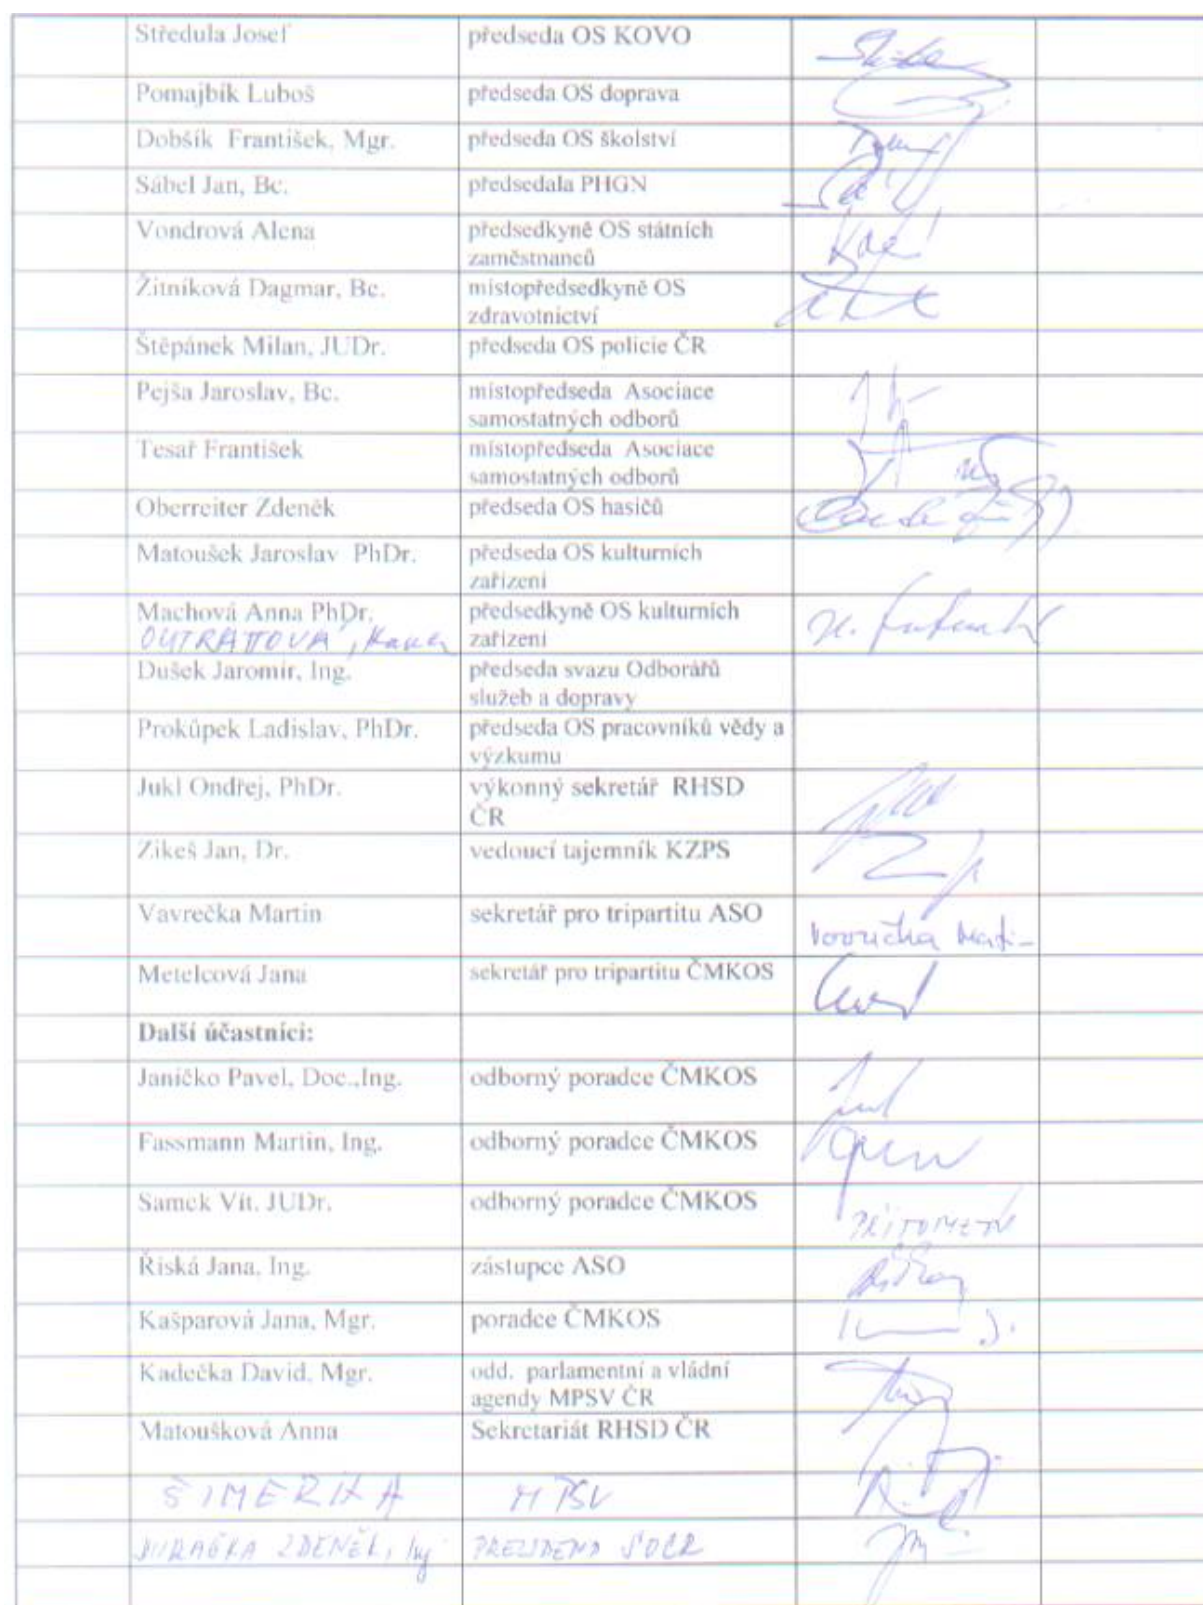 Středula Josef předseda OS KOVO
Pomajbík Luboš předseda OS doprava
Dobšík František, Mgr. předseda OS školství
Sábel Jan, Bc. předsedala PHGN
Vondrová Alena předsedkyně OS státních
zaměstnanců
Žitníková Dagmar, Bc. místopředsedkyně OS
zdravotnictví
Štěpánek Milan, JUDr. předseda OS policie ČR
Pejša Jaroslav, Bc. místopředseda Asociace
samostatných odborů
Tesař František místopředseda Asociace
samostatných odborů
Oberreiter Zdeněk předseda OS hasičů
Matoušek Jaroslav PhDr. předseda OS kulturních
zařízení
Machová Anna PhDr. předsedkyně OS kulturních
OUTRATTOVÁ, zařízení
Dušek Jaromír, Ing. předseda svazu Odborářů
služeb a dopravy
Prokůpek Ladislav, PhDr. předseda OS pracovníků vědy a
výzkumu
Jukl Ondřej, PhDr. výkonný sekretář RHSD
ČR
Zikeš Jan, Dr. vedoucí tajemník KZPS
Vavrečka Martin sekretář pro tripartitu ASO
Metelcová Jana sekretář pro tripartitu ČMKOS
Další účastníci:
Janíčko Pavel, Doc.,Ing. odborný poradce ČMKOS
Fassmann Martin, Ing. odborný poradce ČMKOS
Samek Vít, JUDr. odborný poradce ČMKOS
PŘÍTOMEN
Říská Jana, Ing. zástupce ASO
Kašparová Jana, Mgr. poradce ČMKOS
Kadečka David, Mgr. odd. parlamentní a vládní
agendy MPSV ČR
Matoušková Anna Sekretariát RHSD ČR
ŠIMERKA MPSV
JURAČKA ZDENĚK, Ing PREZIDENT SOCR